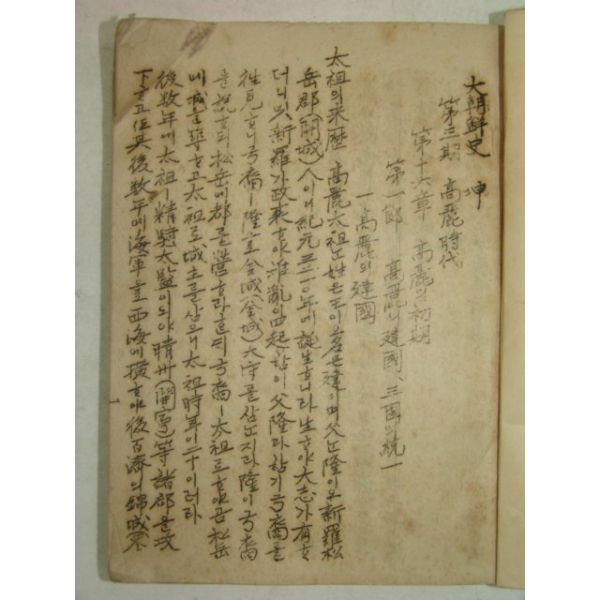 大朝鮮史 坤
第三期 高麗時代
第十六章 高麗의初期
第一節 高麗의建國、三國의統一
一 高麗의建國
太祖의来歷 高麗太祖는姓은王이오名은建이며父는隆이오新羅松
岳郡(開城)人이니紀元三二一〇年에誕生하니라生하야大志가有하
더니以新羅가政衰하야난亂이 起함이父隆과함기弓裔를
往見하니弓裔ㅣ隆으로金城 太守를삼는지라隆이弓裔
를說하되松岳에郡을営하라한되弓裔ㅣ太祖로하야곰松岳
에城을築하고太祖로城主를삼으니太祖時年이二十이러라
後数年에太祖ㅣ精騎大監이되야 (開寧)等諸郡을攻
下하고 其後数年에海軍을 西海에横하야後百済의錦城